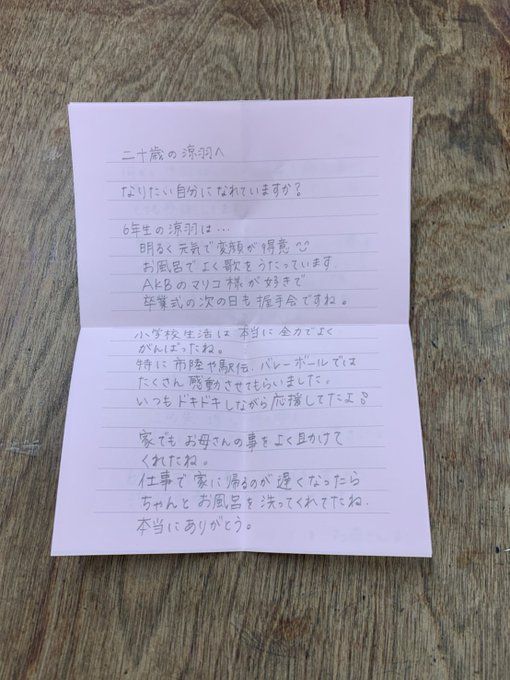 二十歳の涼羽へ
なりたい自分になれていますか?
6年生の涼羽は…
明るく元気で変顔が得意
お風呂でよく歌をうたっています
AKBのマリコ様が好きで
卒業式の次の日も握手会ですね。
小学校生活は本当に全力でよく
がんばったね。
特に市陸や駅伝、バレーボールでは
たくさん感動させてもらいました。
いつもドキドキしながら応援してたよ
家でもお母さんの事をよく助けて
くれたね。
仕事で家に帰るのが遅くなったら
ちゃんとお風呂を洗ってくれてたね。
本当にありがとう。